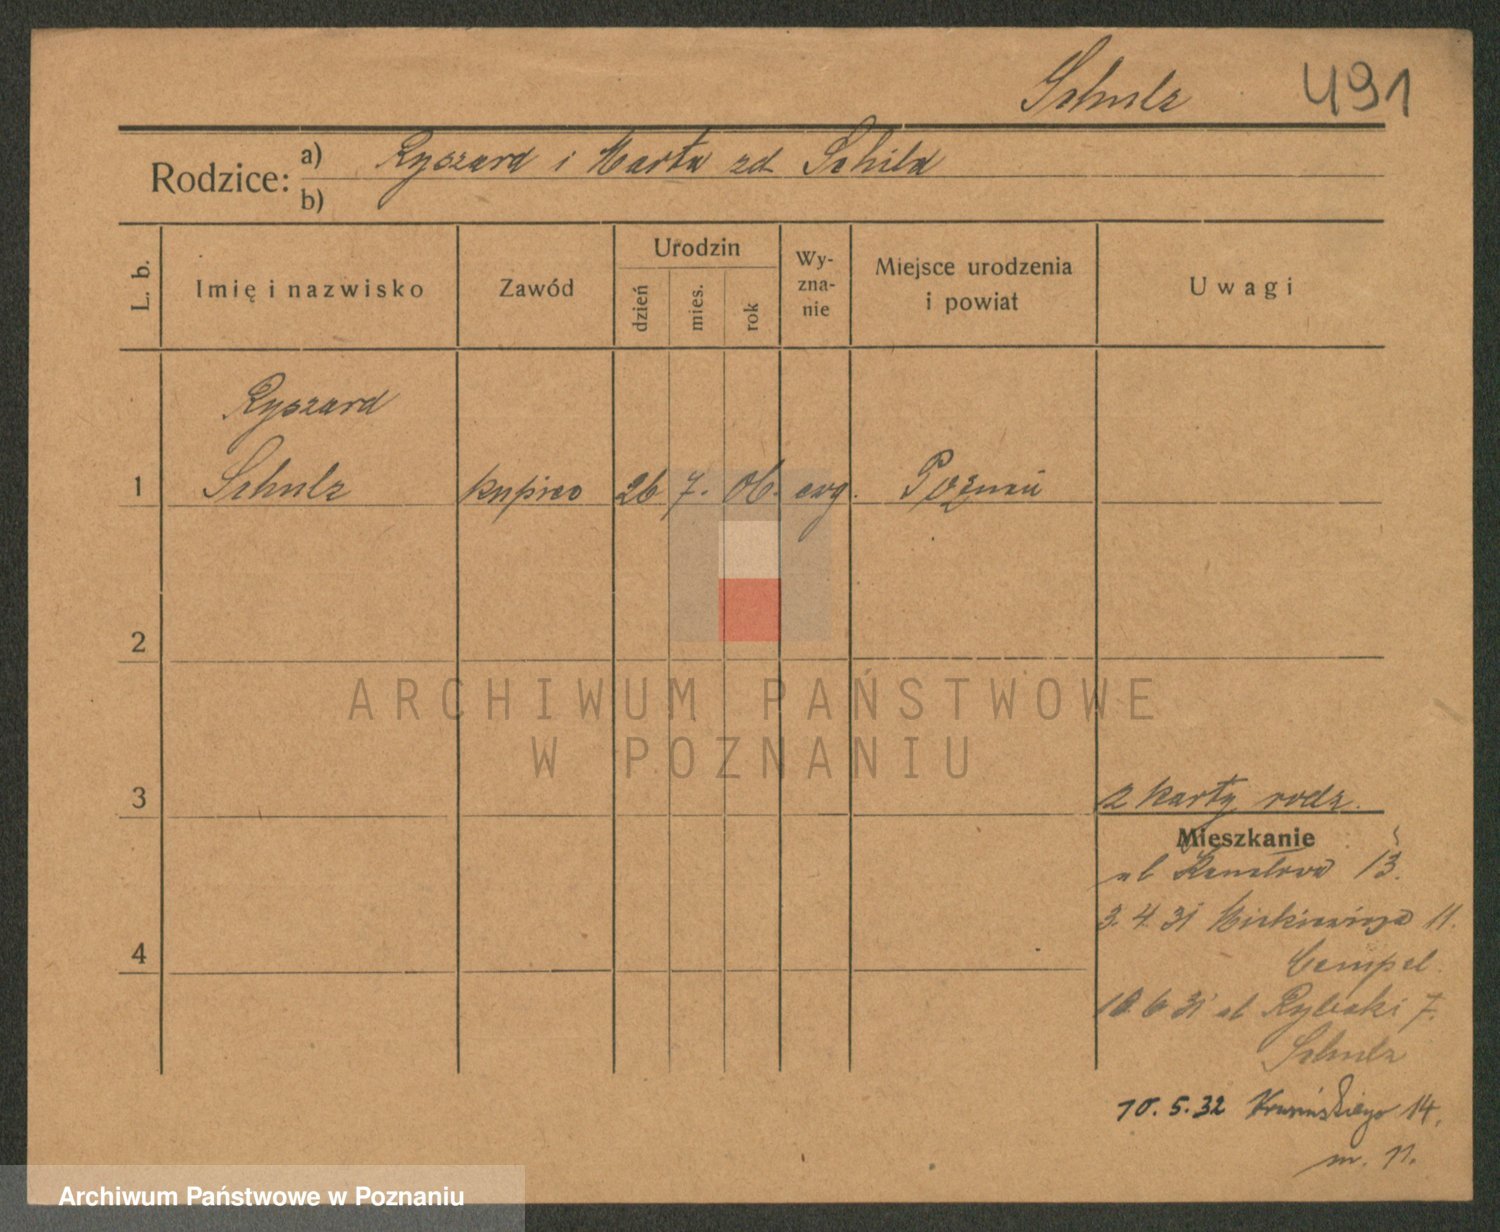 Schulz 491
Rodzice: a) Ryszard i Marta zd Schild
b)
L. b.
Imię i nazwisko
Zawód
Urodzin
dzień
mies.
rok
Wy-
zna-
nie
Miejsce urodzenia
i powiat
Uwagi
Ryszard
1 Schulz kupiec 26 7. 06. ewg. Poznań
2
ARCHIWUM PAŃSTWOWE
W POZNANIU
3
z karty rodz.
Mieszkanie
ul 13.
3.4.31 Mickiewicza 11.
4
10.6.31 ul Rybaki 7.
Schulz
10.5.32 14.
m. 11.
Archiwum Państwowe w Poznaniu